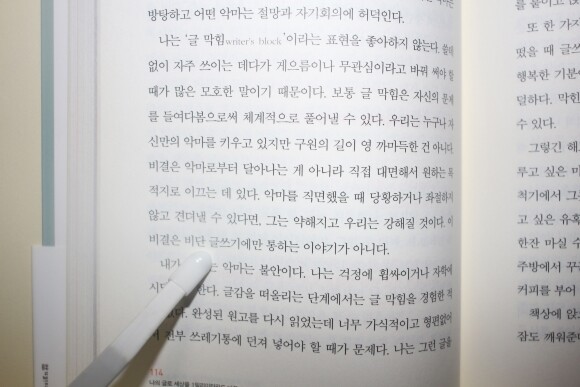 방탕하고 어떤 악마는 절망과 자기회의에 허덕인다.
나는 '글 막힘writer's block'이라는 표현을 좋아하지 않는다. 쓸데
없이 자주 쓰이는 데다가 게으름이나 무관심이라고 바꿔 써야 할
때가 많은 모호한 말이기 때문이다. 보통 글 막힘은 자신의 문제
를 들여다봄으로써 체계적으로 풀어낼 수 있다. 우리는 누구나 자
신만의 악마를 키우고 있지만 구원의 길이 영 까마득한 건 아니다.
비결은 악마로부터 달아나는 게 아니라 직접 대면해서 원하는 목
적지로 이끄는 데 있다. 악마를 직면했을 때 당황하거나 좌절하지
않고 견뎌낼 수 있다면, 그는 약해지고 우리는 강해질 것이다. 이
비결은 비단 글쓰기에만 통하는 이야기가 아니다.
내가 는 악마는 불안이다. 나는 걱정에 휩싸이거나 자학에
시 란다. 글감을 떠올리는 단계에서는 글 막힘을 경험한 적
있다. 완성된 원고를 다시 읽었는데 너무 가식적이고 형편없어
서 전부 쓰레기통에 던져 넣어야 할 때가 문제다. 나는 그런 글을
114
나의 글로 세상을
를 붙이고
또 한 가지
떴을 때 글쓰
행복한 기분이
덜하다. 막힌
수 있다.
그렇긴 해
루고 싶은 마
척기에서 그
고 싶은 유혹
한잔 마실 수
주방에서 꾸
커피를 부어
책상에 앉
잠도 깨워준다